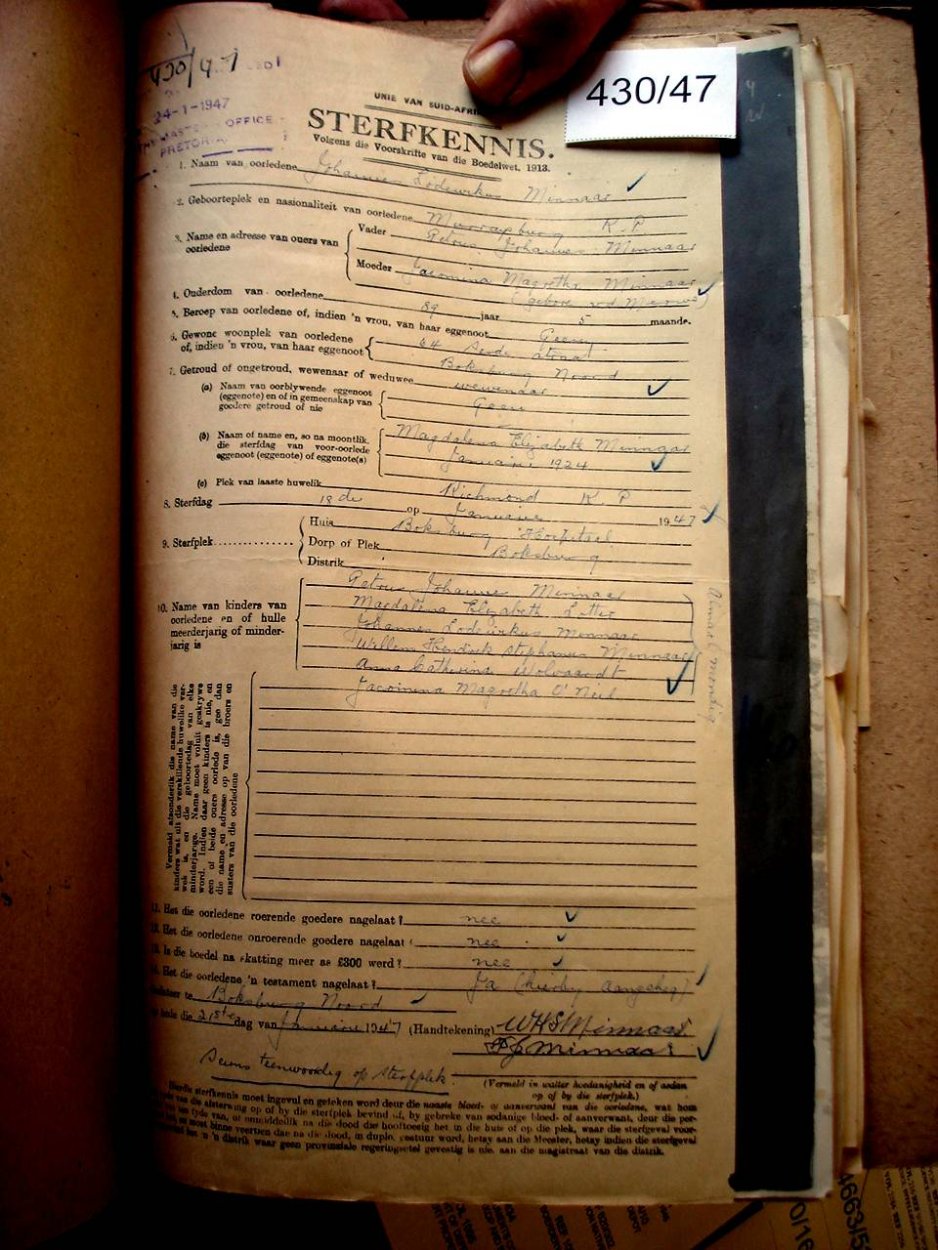 430/47
430/47
24-1-1947
MASTER OFFICE
PRETORIA
UNIE VAN SUID-AFRI
STERFKENNIS.
Volgens die Voorskrifte van die Boedelwet, 1913.
1. Naam van oorledene Johannes Lodewikus Minnaar
2. Geboorteplek en nasionaliteit van oorledene Murraysburg K.P
3. Name en adresse van ouers van oorledene
Vader Petrus Johannes Minnaar
Moeder Jacomina Magretha Minnaar
(gebore v.d Merwe)
4. Ouderdom van oorledene 89 jaar 5 maande.
5. Beroep van oorledene of, indien 'n vrou, van haar eggenoot Geen
6. Gewone woonplek van oorledene of, indien 'n vrou, van haar eggenoot 64 Sesde
Boksburg Noord
7. Getroud of ongetroud, wewenaar of weduwee wewenaar
(a) Naam van oorblywende eggenoot (eggenote) en of in gemeenskap van goedere getroud of nie
Geen
(b) Naam of name en, so na moontlik, die sterfdag van voor-oorlede eggenoot (eggenote) of eggenote(s)
Magdalena Elizabeth Minnaar
Januarie 1924
(c) Plek van laaste huwelik Richmond K.P
8. Sterfdag 18de op Januarie 1947
9. Sterfplek
Huis Boksburg Hospitaal
Dorp of Plek Boksburg
Distrik
10. Name van kinders van oorledene en of hulle meerderjarig of minderjarig is
Petrus Johannes Minnaar
Magdalena Elizabeth Lotter
Johannes Lodewikus Minnaar
Willem Hendrik Stephanus Minnaar
Anna Catherina Wolvaardt
Jacomina Magretha O'Niel
Almal mondig
Vermeld afsonderlik die name van die
kinders wat uit die verskillende huwelike verwek is, en die geboortedag van elke
minderjarige. Name moet voluit geskrywe
word. Indien daar geen kinders is nie, en
een of beide ouers oorlede is, gee dan
die name en adresse op van die broers en
susters van die oorledene
11. Het die oorledene roerende goedere nagelaat? nee
12. Het die oorledene onroerende goedere nagelaat? nee
13. Is die boedel na skatting meer as £300 werd? nee
14. Het die oorledene 'n testament nagelaat? Ja (hierby aangeheg)
te Boksburg Noord
hede die 21ste dag van Januarie 1947 (Handtekening) WHSMinnaar
PJMinnaar
Seuns teenwoordig op sterfplek.
(Vermeld in watter hoedanigheid en of aedan
op of by die sterfplek.)
Hierdie sterfkennis moet ingevul en geteken word deur die naaste bloed- of aanverwant van die oorledene, wat hom
van die afsterwing op of by die sterfplek bevind of, by gebreke van sodanige bloed- of aanverwant, deur die per-
ten tyde van, of onmiddellik na die dood die hooftoesig het in die huis of op die plek, waar die sterfgeval voor-
en moet binne veertien dae na die dood, in duplo, gestuur word, hetsy aan die Meester, hetsy indien die sterfgeval
het in 'n distrik waar geen provinsiale regeringsetel gevestig is nie, aan die magistraat van die distrik.
4663/5
0/16